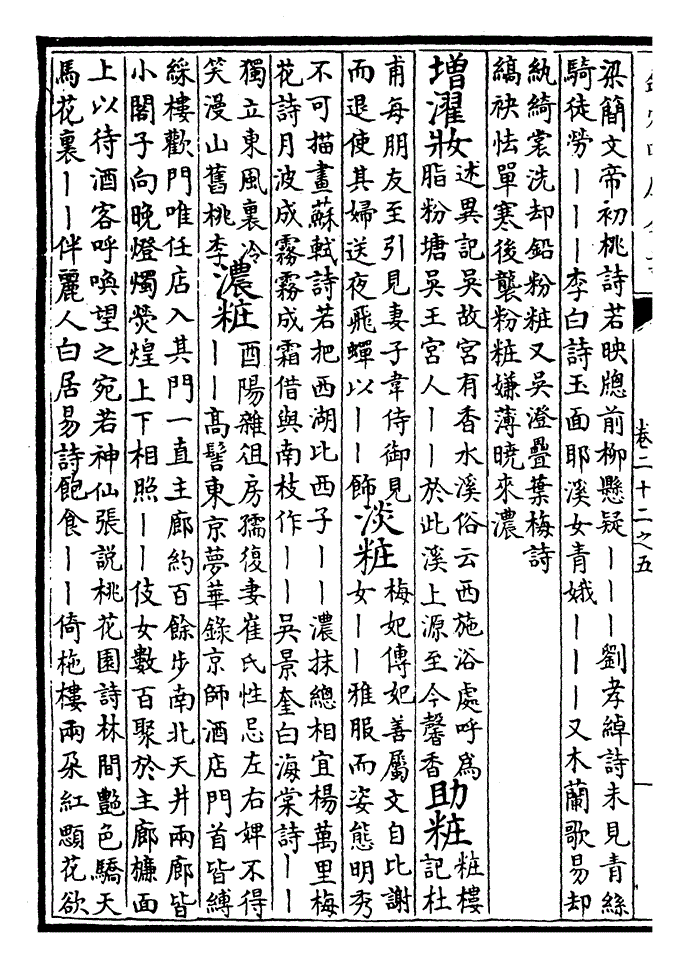 卷二十二之五
梁簡文帝初桃詩若映牕前柳懸疑丨丨丨劉孝綽詩未見青絲
騎徒勞丨丨丨李白詩玉面耶溪女青娥丨丨丨又木蘭歌易却
紈綺裳洗却鉛粉粧又吳澄疊葉梅詩
縞袂怯單寒後襲粉粧嫌薄曉來濃
增濯妝
述異記吳故宮有香水溪俗云西施浴處呼為
脂粉塘吳王宮人丨丨於此溪上源至今馨香
助粧
粧樓
記杜
甫每朋友至引見妻子韋侍御見
而退使其婦送夜飛蟬以丨丨飾
淡粧
梅妃傳妃善屬文自比謝
女丨丨雅服而姿態明秀
不可描畫蘇軾詩若把西湖比西子丨丨濃抹總相宜楊萬里梅
花詩月波成霧霧成霜借與南枝作丨丨吳景奎白海棠詩丨丨
獨立東風裏冷
笑漫山舊桃李
濃粧
酉陽雜俎房孺復妻崔氏性忌左右婢不得
丨丨高髻東京夢華錄京師酒店門首皆縛
綵樓歡門唯任店入其門一直主廊約百餘步南北天井兩廊皆
小閣子向晚燈燭熒煌上下相照丨丨伎女數百聚於主廊槏面
上以待酒客呼喚望之宛若神仙張說桃花園詩林間艷色驕天
馬花裏丨丨伴麗人白居易詩飽食丨丨倚柂樓兩朶紅顋花欲